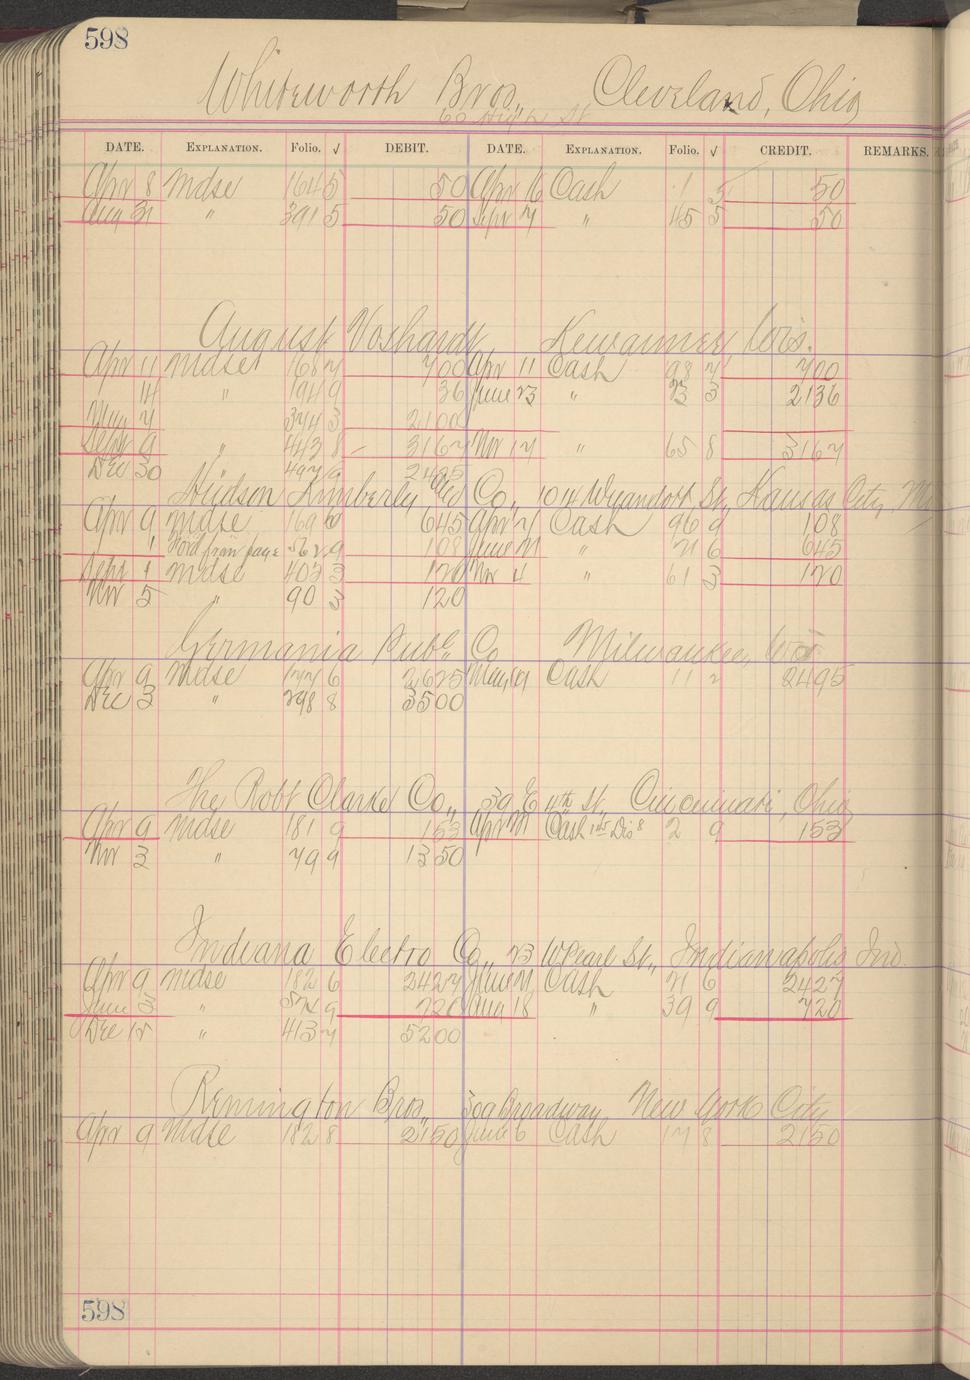 598
Whiteworth Bros., Cleveland, Ohio
60 High St
DATE. EXPLANATION. Folio. √ DEBIT. DATE. EXPLANATION. Folio. √ CREDIT. REMARKS.
Apr 8 Mdse 164 5 50 Apr 16 Cash 1 5 50
Aug 31 " 391 5 50 Sept 7 " 45 5 50
August Voshardt, Kewaunee Wis.
Apr 11 Mdse 168 7 700 Apr 11 Cash 98 7 700
14 " 194 9 36 June 23 " 23 3 2136
May 7 374 3 2100
Sept 9 " 443 8 3167 Nov 17 " 65 8 3167
Dec 30 " 497 9 2495
Hudson Kimberly Co., 1014 Wyandott St., Kansas City, Mo
Apr 9 Mdse 169 6 645 Apr 7 Cash 96 9 108
1 Ford from page 562 9 108 June 21 " 21 6 645
Sept 1 Mdse 402 3 120 Nov 4 " 61 3 120
Nov 5 " 90 3 120
Germania Publ. Co Milwaukee, Wis
Apr 9 Mdse 177 6 2625 May 19 Cash 11 2 2495
Dec 3 " 298 8 3500
The Robt Clarke Co., 39 E 4th St., Cincinnati, Ohio
Apr 9 Mdse 181 9 153 Apr 21 Cash 2 9 153
Nov 3 " 79 9 1350
Indiana Electro Co., 23 W Pearl St., Indianapolis Ind.
Apr 9 Mdse 182 6 2427 June 21 Cash 21 6 2427
June 3 " 574 9 720 Aug 18 " 39 9 720
Dec 15 " 413 7 5200
Remington Bros., 309 Broadway New York City
Apr 9 Mdse 182 8 2150 June 6 Cash 17 8 2150
598